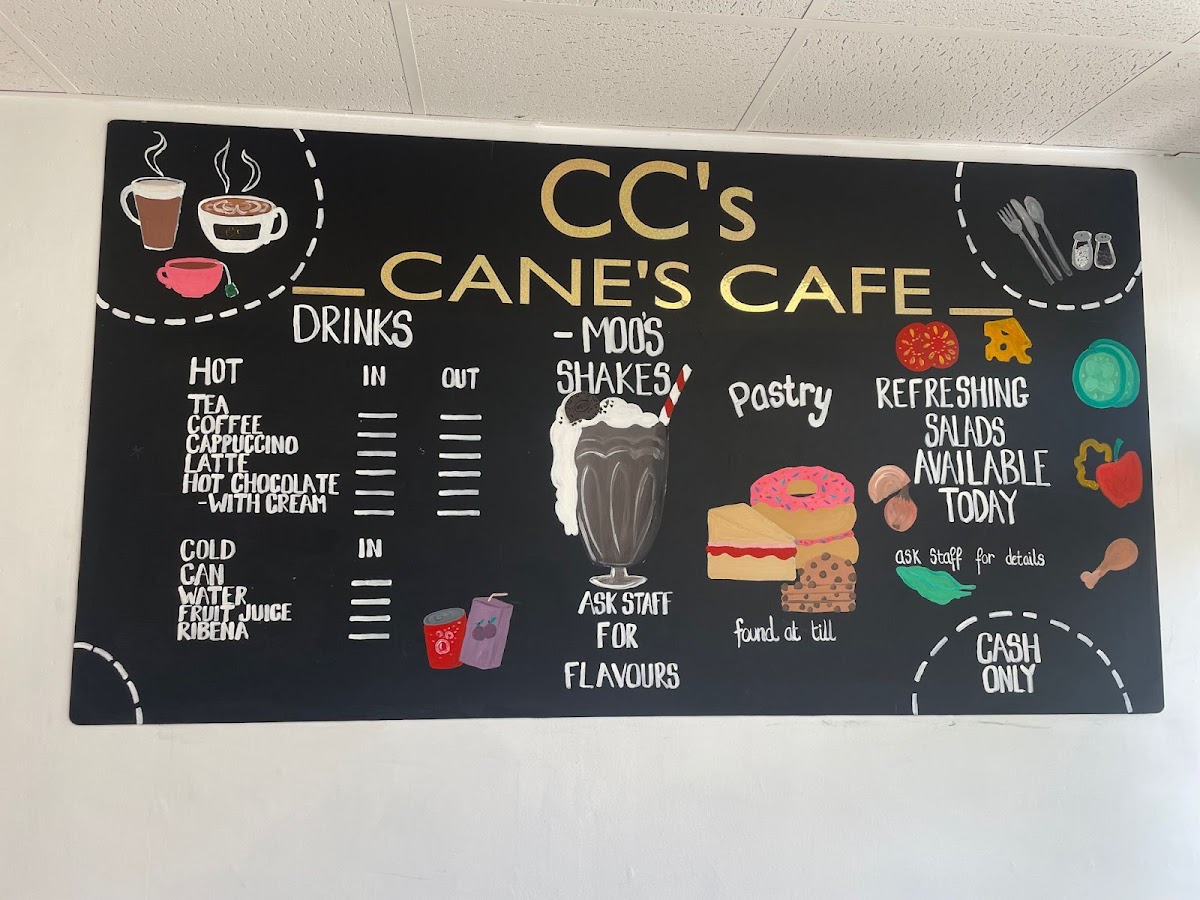 CC's
CANE'S CAFE
DRINKS
HOT IN OUT
TEA
COFFEE
CAPPUCCINO
LATTE
HOT CHOCOLATE
-WITH CREAM
COLD IN
CAN
WATER
FRUIT JUICE
RIBENA
- MOO'S
SHAKES
ASK STAFF
FOR
FLAVOURS
Pastry
found at till
REFRESHING
SALADS
AVAILABLE
TODAY
ask staff for details
CASH
ONLY